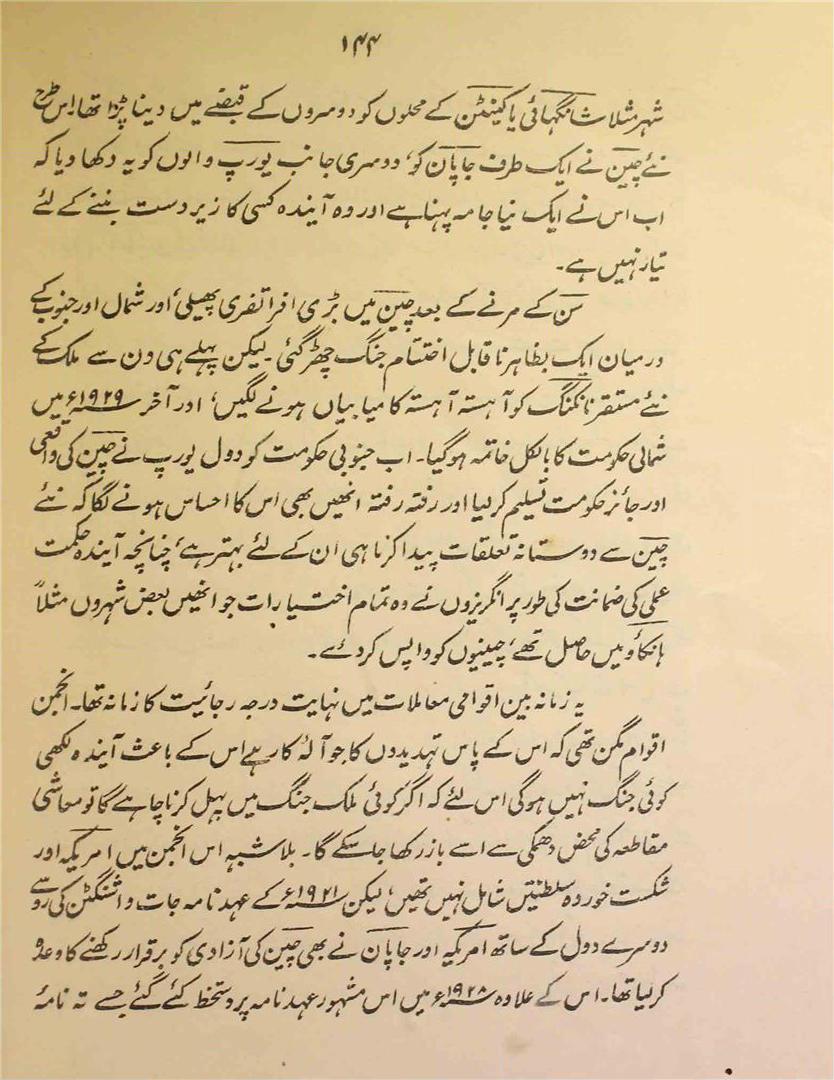 ۱۴۴
شہر مثلاً شانگہائی یا کینٹن کے محلوں کو دوسروں کے قبضے میں دینا پڑا تھا۔ اس طرح
نئے چین نے ایک طرف جاپان کو، دوسری جانب یورپ والوں کو یہ دکھا دیا کہ
اب اس نے ایک نیا جامہ پہنا ہے اور وہ آیندہ کسی کا زیردست بننے کے لئے
تیار نہیں ہے۔
سن کے مرنے کے بعد چین میں بڑی افراتفری پھیلی، اور شمال اور جنوب کے
درمیان ایک بظاہر ناقابل اختتام جنگ چھڑ گئی۔ لیکن پہلے ہی دن سے ملک کے
نئے مستقر نانکنگ کو آہستہ آہستہ کامیابیاں ہونے لگیں، اور آخر ۱۹۲۹ء میں
شمالی حکومت کا بالکل خاتمہ ہوگیا۔ اب جنوبی حکومت کو دول یورپ نے چین کی واقعی
اور جائز حکومت تسلیم کرلیا اور رفتہ رفتہ انھیں بھی اس کا احساس ہونے لگا کہ نئے
چین سے دوستانہ تعلقات پیدا کرنا ہی ان کے لئے بہتر ہے، چنانچہ آیندہ حکمت
عملی کی ضمانت کی طور پر انگریزوں نے وہ تمام اختیارات جو انھیں بعض شہروں مثلاً
ہانکاؤ میں حاصل تھے، چینیوں کو واپس کردئے۔
یہ زمانہ بین اقوامی معاملات میں نہایت درجہ رجائیت کا زمانہ تھا۔ انجمن
اقوام مگن تھی کہ اس کے پاس تہدیدوں کا جو آلۂ کار ہے اس کے باعث آیندہ کبھی
کوئی جنگ نہیں ہوگی اس لئے کہ اگر کوئی ملک جنگ میں پہل کرنا چاہے گا تو معاشی
مقاطعہ کی محض دھمکی سے اسے باز رکھا جاسکے گا۔ بلاشبہ اس انجمن میں امریکہ اور
شکست خوردہ سلطنتیں شامل نہیں تھیں، لیکن ۱۹۲۱ء کے عہد نامہ جات واشنگٹن کی رو سے
دوسرے دول کے ساتھ امریکہ اور جاپان نے بھی چین کی آزادی کو برقرار رکھنے کا وعدہ
کرلیا تھا۔ اس کے علاوہ ۱۹۲۸ء میں اس مشہور عہد نامہ پر دستخط کئے گئے جسے تہ نامۂ